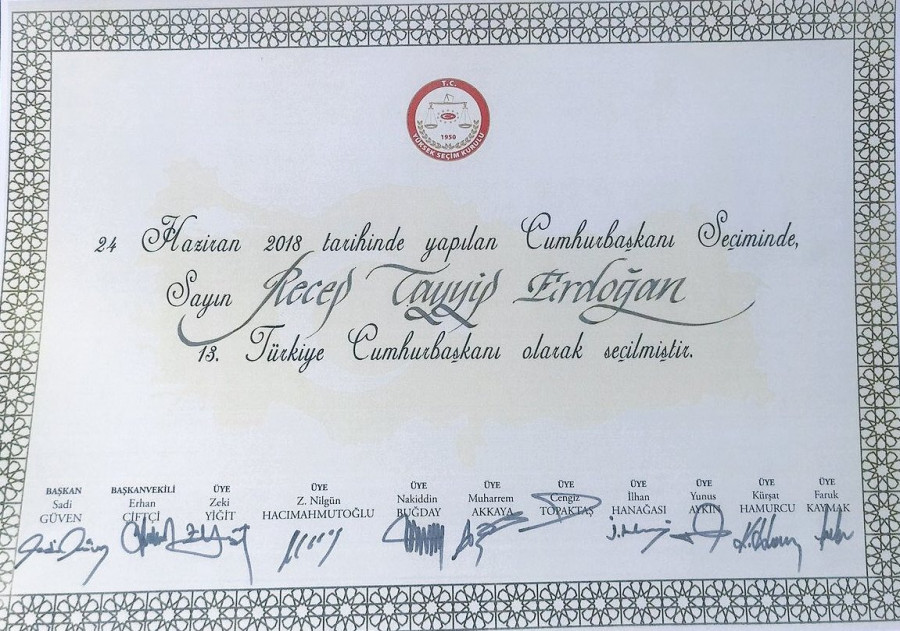 T.C.
YÜKSEK SEÇİM KURULU
1950
24 Haziran 2018 tarihinde yapılan Cumhurbaşkanı Seçiminde,
Sayın Recep Tayyip Erdoğan
13. Türkiye Cumhurbaşkanı olarak seçilmiştir.
BAŞKAN BAŞKANVEKİLİ ÜYE ÜYE ÜYE ÜYE ÜYE ÜYE ÜYE ÜYE
Sadi Erhan Zeki Z. Nilgün Nakiddin Muharrem Cengiz İlhan Yunus Kürşat Faruk
GÜVEN ÇİFTÇİ YİĞİT HACIMAHMUTOĞLU BUĞDAY AKKAYA TOPAKTAŞ HANAĞASI AYKIN HAMURCU KAYMAK